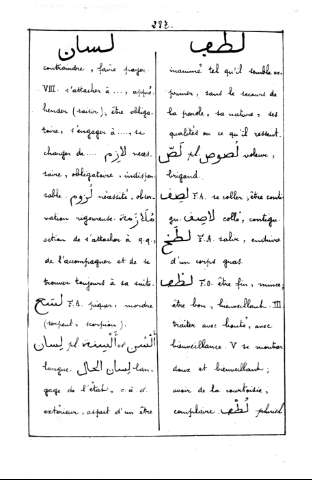 لسان
لطف
contraindre, faire payer.
VIII. s'attacher à ..., appré-
hender (saisir), être obliga-
toire, s'engager à ..., se
charger de.... لازم néces.
saire, obligatoire, indispen-
sable. لزوم nécessité, obser-
vation rigoureuse. ملازمة
action de s'attacher à q.q.,
de l'accompagner et de se
trouver toujours à sa suite.
لسع F.A. piquer, mordre
(serpent, scorpion).
لسان pl. ألسنة et ألسن
langue. لسان الحال lan-
gage de l'état, c. à d.
extérieur, aspect d'un être
inanimé tel qu'il semble ex-
primer, sans le secours de
la parole, sa nature, ses
qualités ou ce qu'il ressent.
لص pl. لصوص voleur,
brigand.
لصف F.A. se coller, être conti-
gu. لاصف collé, contigu
لطخ F.A. salir, enduire
d'un corps gras.
لطف F.O. être fin, mince,
être bon, bienveillant. III
traiter avec bonté, avec
bienveillance. V se montrer
doux et bienveillant;
avoir de la courtoisie,
complaire. لطف